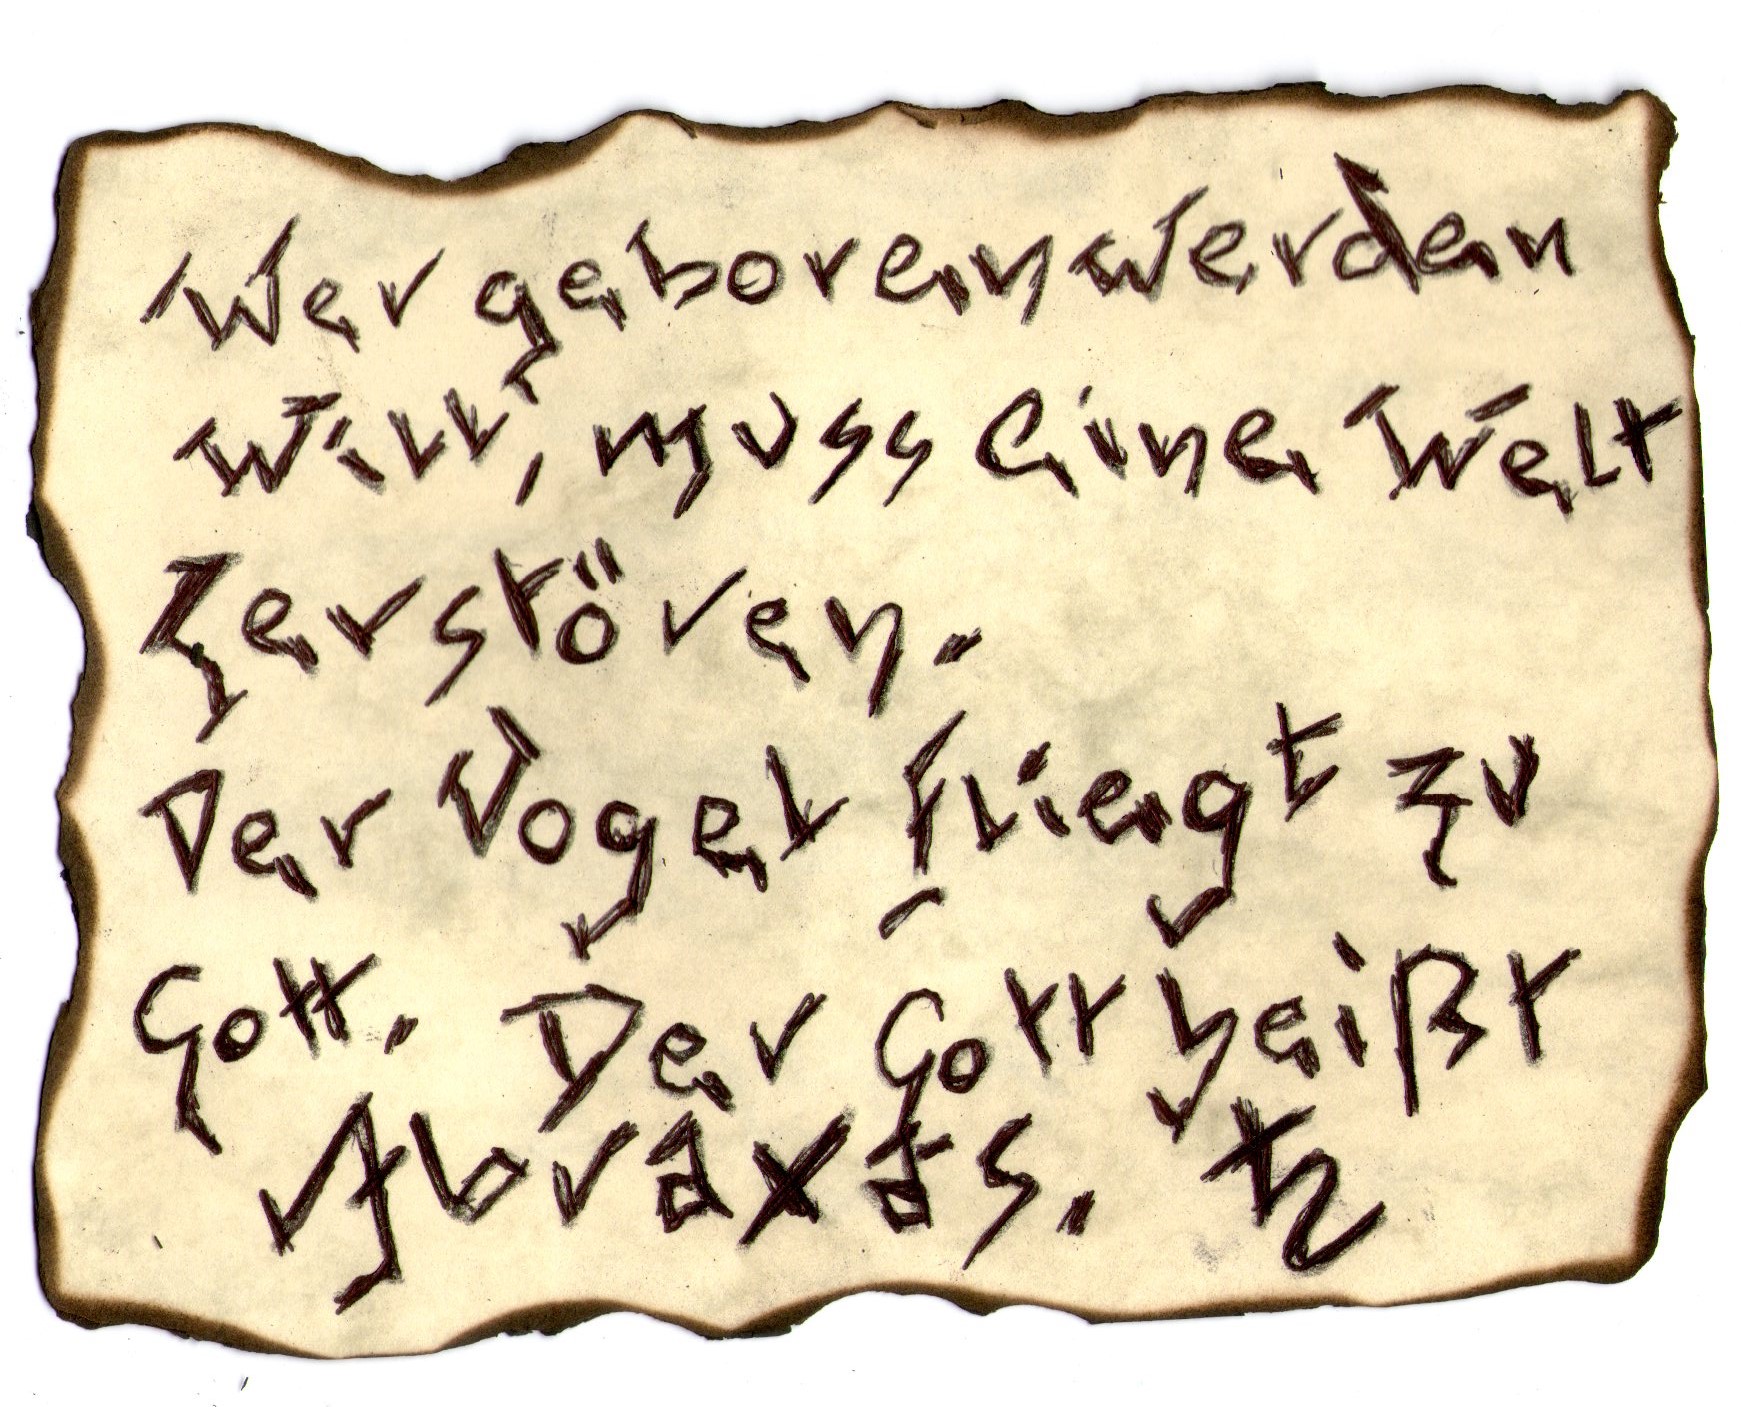 Wer geboren werden
will, muss eine Welt
Zerstören.
Der Vogel fliegt zu
Gott. Der Gott heißt
Abraxas. ♄